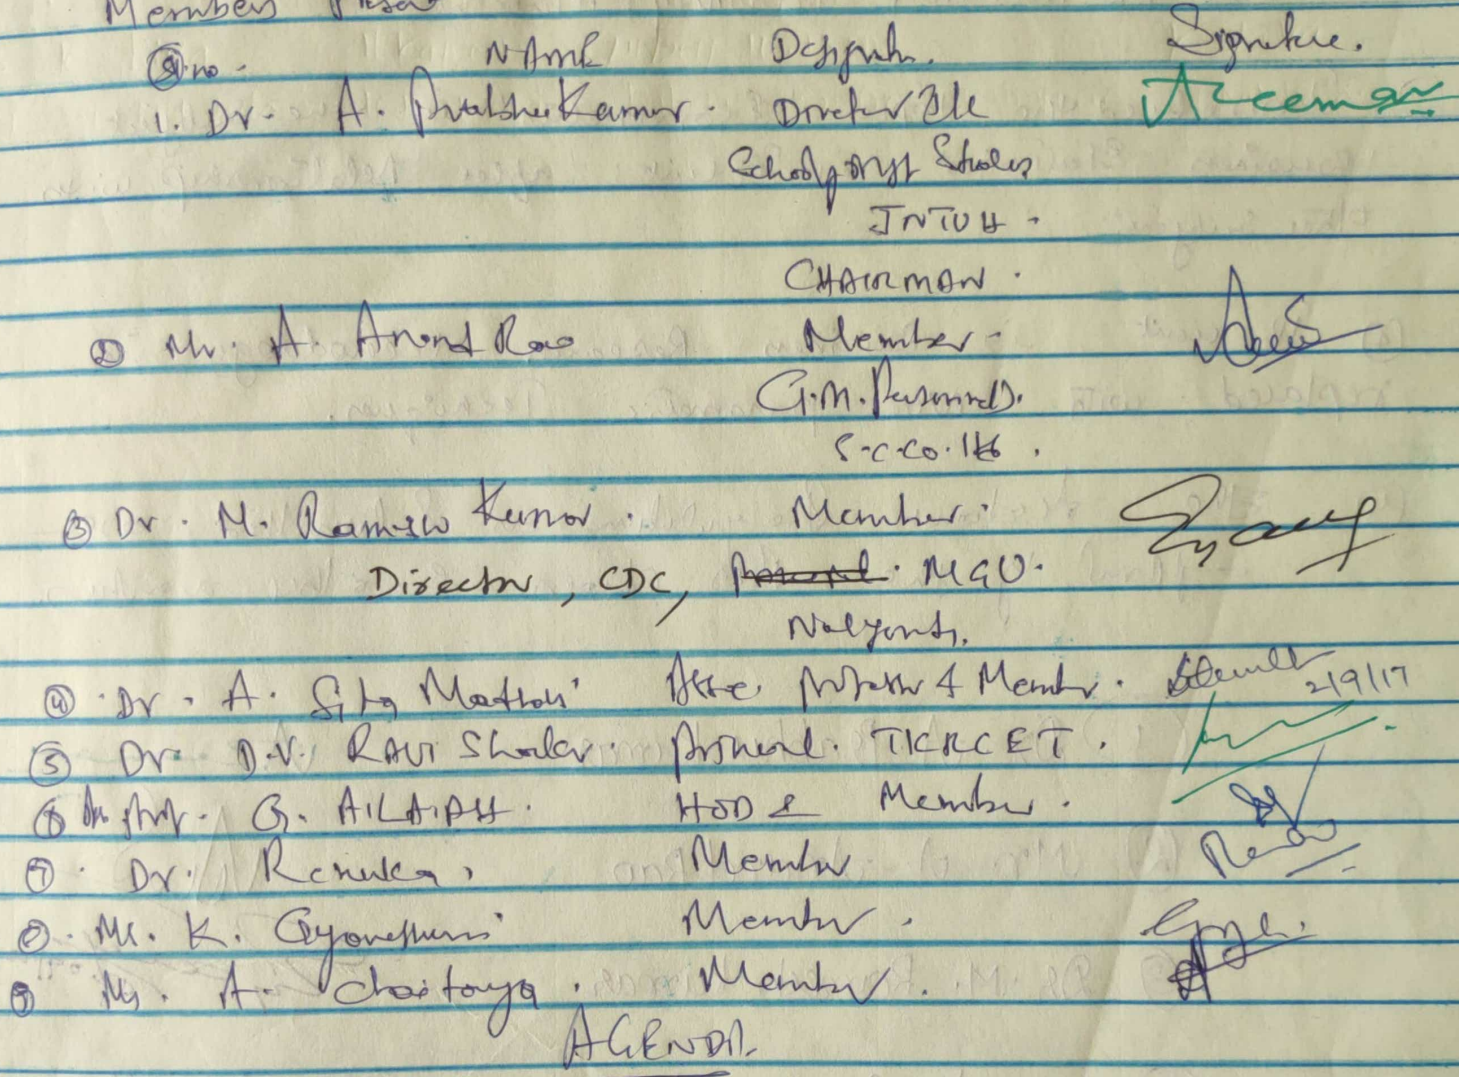 Members Present
S.no. NAME Designatn. Signature.
1. Dr. A. Prabhu Kumar. Director
School of Mgt Studies
JNTUH.
CHAIRMAN.
② Mr. A. Anand Rao Member-
G.M. Personnel.
S.C.Co. Ltd.
③ Dr. M. Ramesh Kumar. Member.
Director, CDC, MGU.
Nalgonda.
④ Dr. A. Sita Madhavi Asso. professor & Member.
2/9/17
⑤ Dr. D.V. RAVI Shankar. Principal. TKRCET.
⑥ G. AILAIAH. HOD & Member.
⑦ Dr. Renuka, Member
⑧ Ms. K. Gyaneshwari Member.
⑨ Ms. A. Chaitanya. Member.
AGENDA.